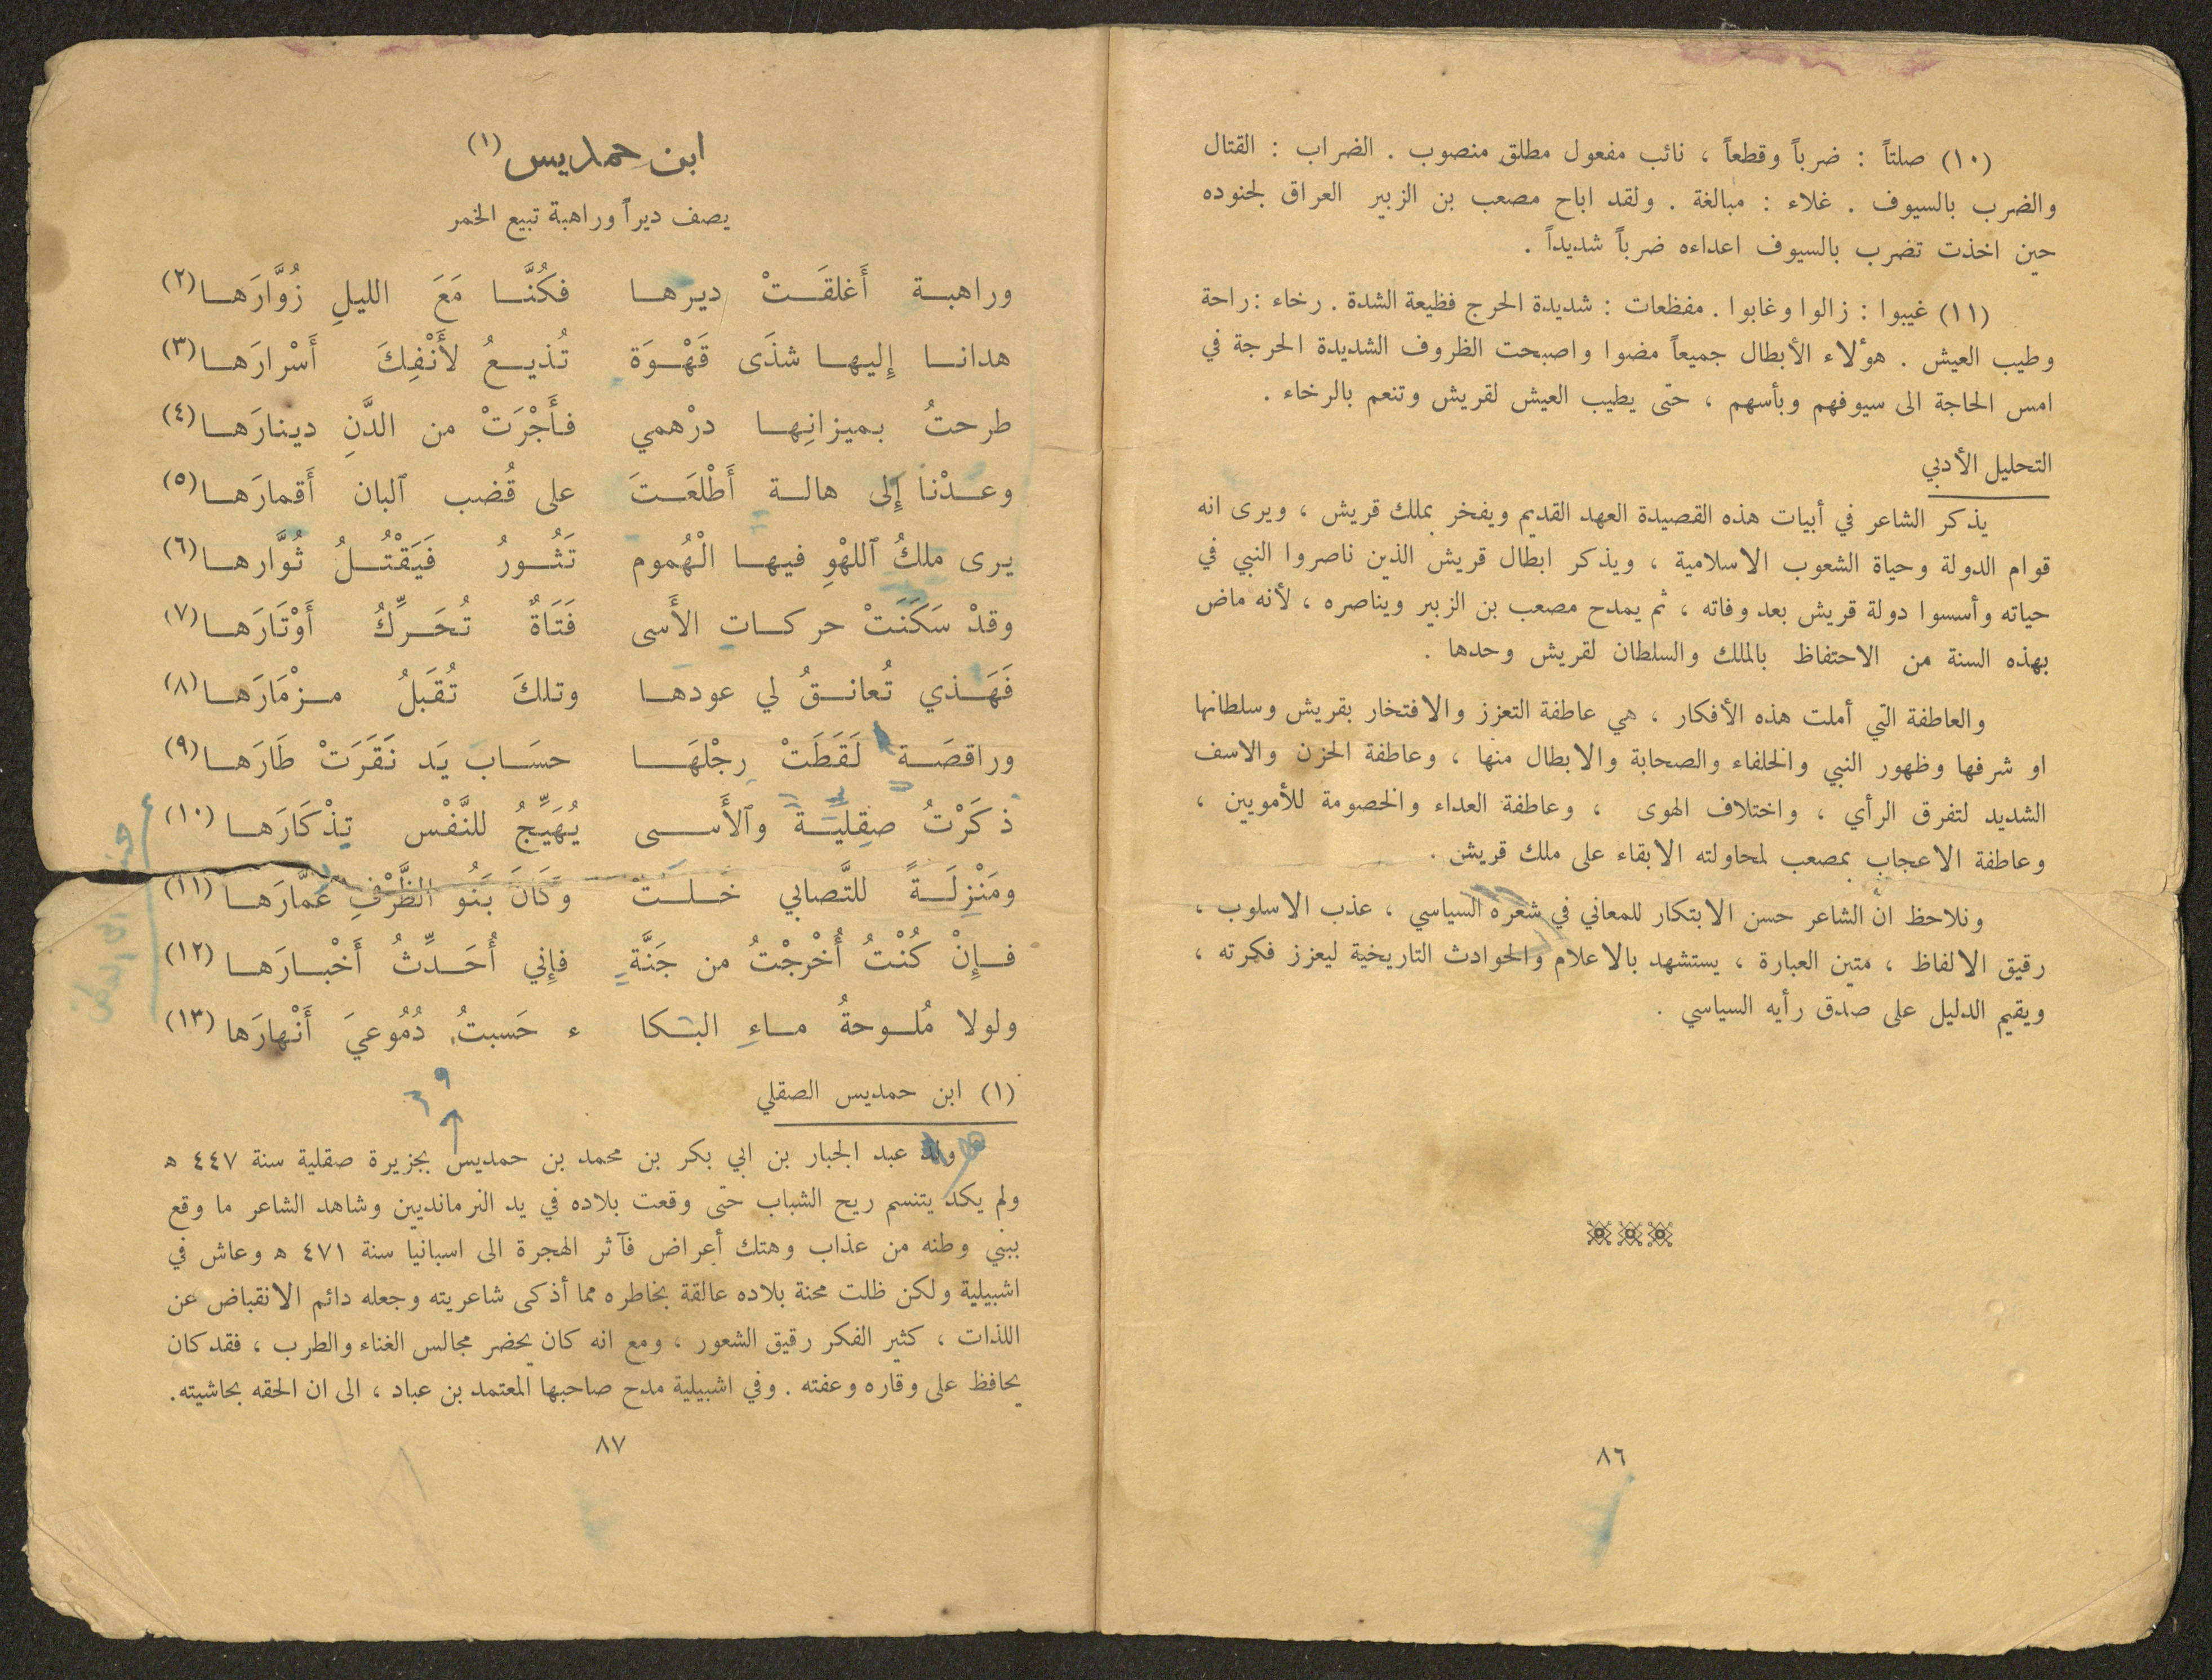 (١٠) صلتاً : ضرباً وقطعاً ، نائب مفعول مطلق منصوب . الضراب : القتال
والضرب بالسيوف . غلاء : مبالغة . ولقد اباح مصعب بن الزبير العراق لجنوده
حين اخذت تضرب بالسيوف اعداءه ضرباً شديداً .
(١١) غيبوا : زالوا وغابوا . مفظعات : شديدة الحرج فظيعة الشدة . رخاء : راحة
وطيب العيش . هؤلاء الأبطال جميعاً مضوا واصبحت الظروف الشديدة الحرجة في
امس الحاجة الى سيوفهم وبأسهم ، حتى يطيب العيش لقريش وتنعم بالرخاء .
التحليل الأدبي
يذكر الشاعر في أبيات هذه القصيدة العهد القديم ويفخر بملك قريش ، ويرى انه
قوام الدولة وحياة الشعوب الاسلامية ، ويذكر ابطال قريش الذين ناصروا النبي في
حياته وأسسوا دولة قريش بعد وفاته ، ثم يمدح مصعب بن الزبير ويناصره ، لأنه ماض
بهذه السنة من الاحتفاظ بالملك والسلطان لقريش وحدها .
والعاطفة التي أملت هذه الأفكار ، هي عاطفة التعزز والافتخار بقريش وسلطانها
او شرفها وظهور النبي والخلفاء والصحابة والابطال منها ، وعاطفة الحزن والاسف
الشديد لتفرق الرأي ، واختلاف الهوى ، وعاطفة العداء والخصومة للأمويين ،
وعاطفة الاعجاب بمصعب لمحاولته الابقاء على ملك قريش .
ونلاحظ ان الشاعر حسن الابتكار للمعاني في شعره السياسي ، عذب الاسلوب ،
رقيق الالفاظ ، متين العبارة ، يستشهد بالاعلام والحوادث التاريخية ليعزز فكرته ،
ويقيم الدليل على صدق رأيه السياسي .
٨٦
ابن حمديس (١)
يصف ديراً وراهبة تبيع الخمر
وراهبة أَغلقَتْ ديرها فكُنَّا مَعَ الليلِ زُوَّارَها (٢)
هدانا إِليها شذَى قَهْوَة تُذيعُ لأَنْفِكَ أَسْرارَها (٣)
طرحتُ بميزانِها درْهمي فأَجْرَتْ من الدَّنِ دينارَها (٤)
وعدْنا إِلى هالة أَطْلعَتَ على قُضب ٱلبان أَقمارَها (٥)
يرى ملكُ ٱللهْوِ فيها الْهُموم تَثُورُ فَيَقْتُلُ ثُوَّارها (٦)
وقدْ سَكَنَتْ حركاتِ الأَسى فَتَاةٌ تُحَرِّكُ أَوْتَارَها (٧)
فَهَذي تُعانقُ لي عودها وتلكَ تُقَبلُ مزْمَارَها (٨)
وراقصَة لَقَطَتْ رِجْلهَا حسَاب يَد نَقَرَتْ طَارَها (٩)
ذكَرْتُ صقِليةَ وٱلأَسى يُهَيِّجُ للنَّفْس تِذْكَارَها (١٠)
ومَنْزِلَةً للتَّصابي خلَتْ وَكَانَ بَنُو الظَّرْفِ عَمَّارَها (١١)
فإِنْ كُنْتُ أُخْرجْتُ من جَنَّةٍ فإِني أُحَدِّثُ أَخْبارَها (١٢)
ولولا مُلوحةُ ماءِ البكا ء حَسبتُ دُمُوعيَ أَنْهارَها (١٣)
(١) ابن حمديس الصقلي
ولد عبد الجبار بن ابي بكر بن محمد بن حمديس بجزيرة صقلية سنة ٤٤٧ ه
ولم يكد يتنسم ريح الشباب حتى وقعت بلاده في يد النرمانديين وشاهد الشاعر ما وقع
ببني وطنه من عذاب وهتك أعراض فآثر الهجرة الى اسبانيا سنة ٤٧١ ه وعاش في
اشبيلية ولكن ظلت محنة بلاده عالقة بخاطره مما أذكى شاعريته وجعله دائم الانقباض عن
اللذات ، كثير الفكر رقيق الشعور ، ومع انه كان يحضر مجالس الغناء والطرب ، فقد كان
يحافظ على وقاره وعفته . وفي اشبيلية مدح صاحبها المعتمد بن عباد ، الى ان الحقه بحاشيته .
٨٧